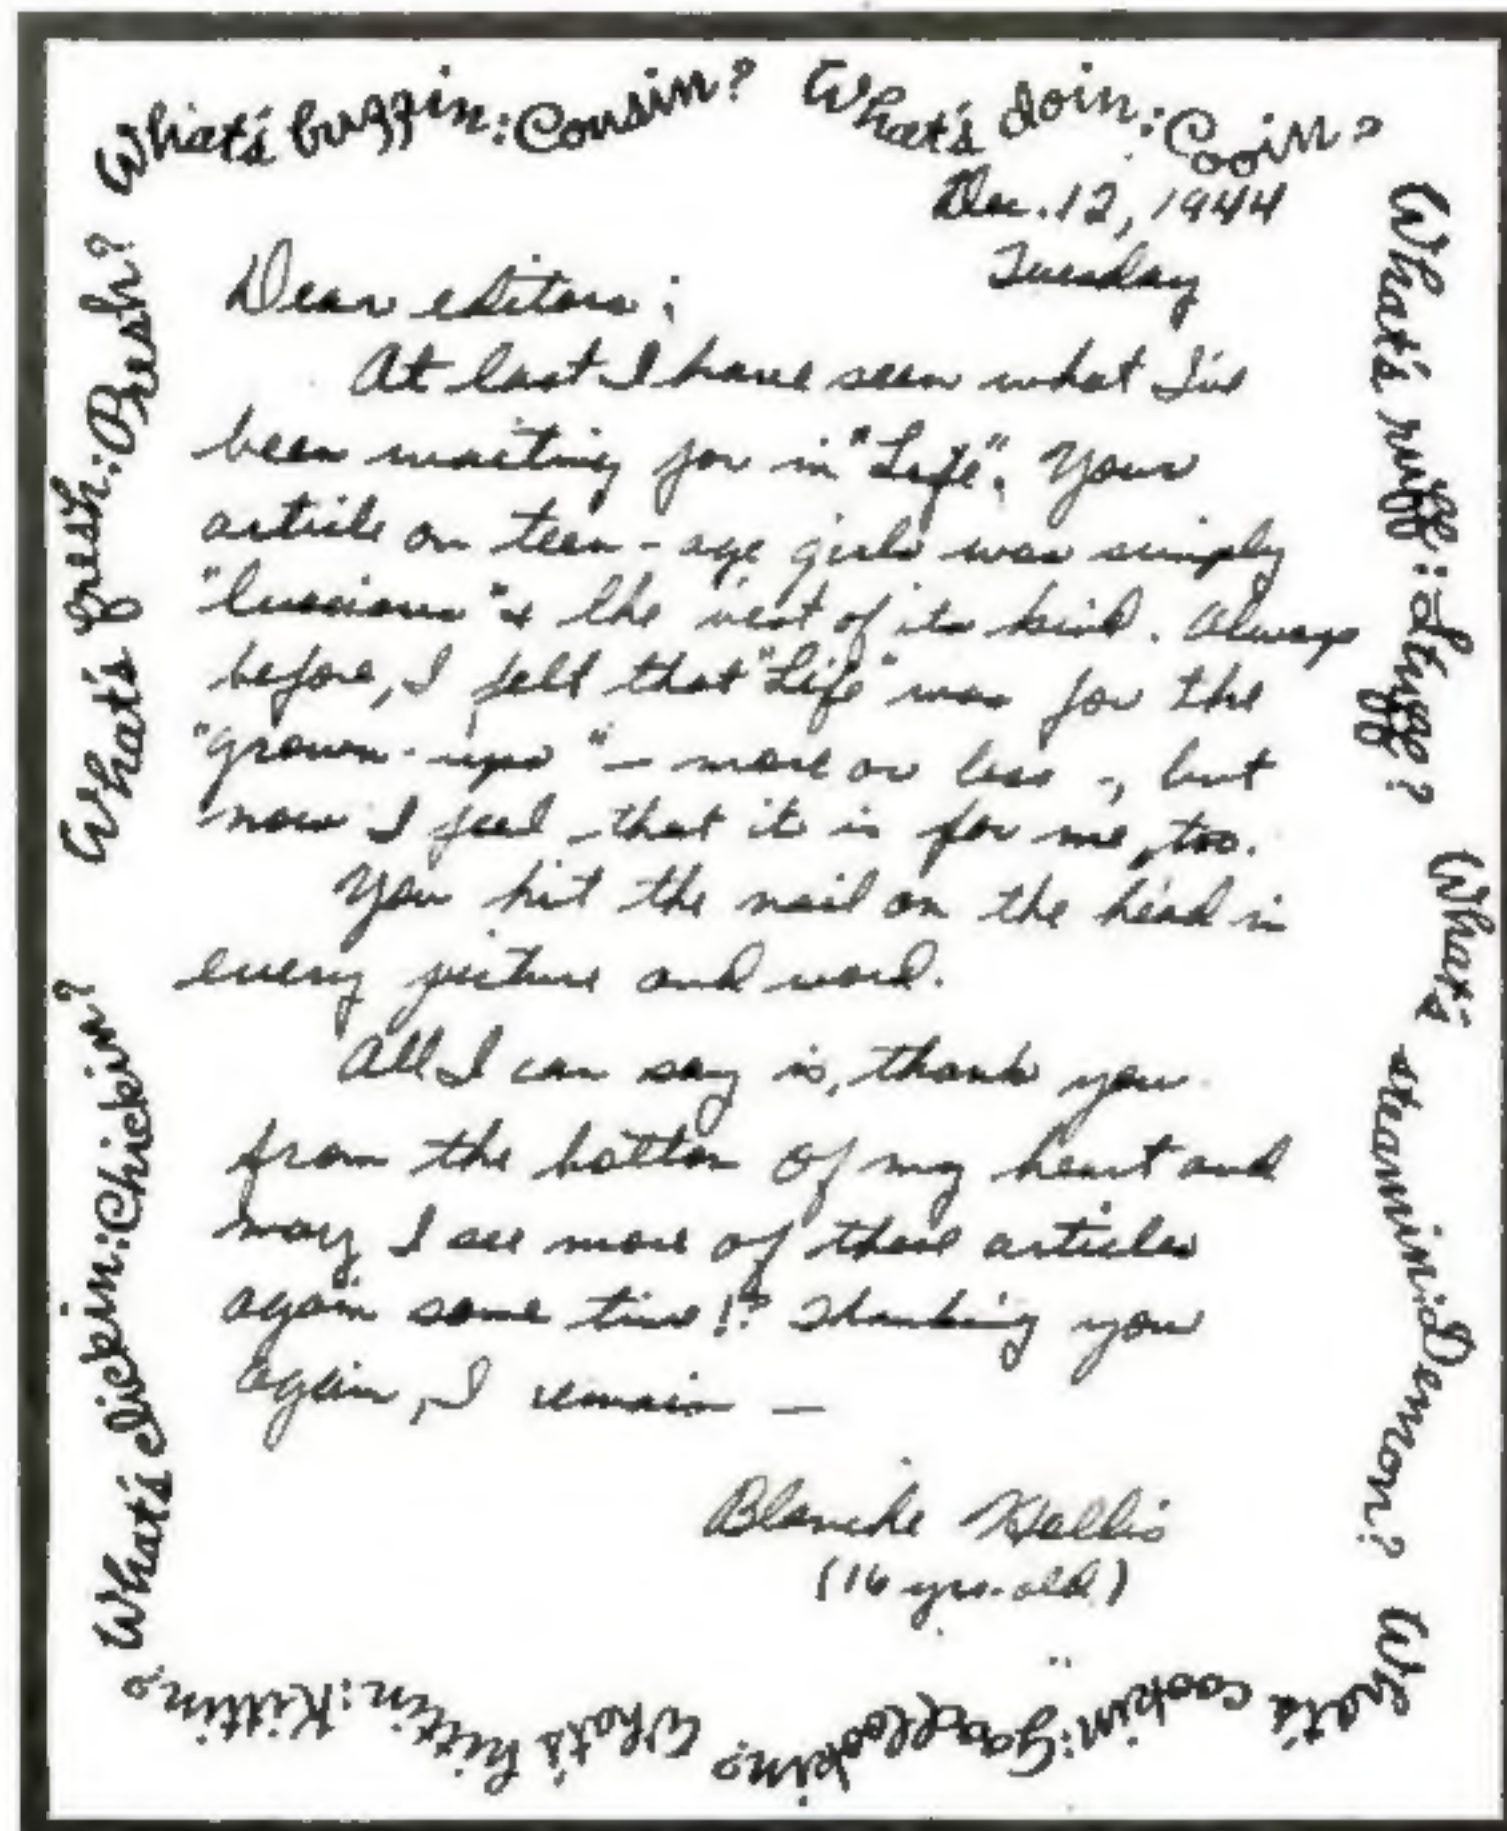 What's buzzin: Cousin? What's doin: Cooin?
What's ruff: Stuff?
What's steamin: Demon?
What's cookin: Goodlookin?
What's hittin: Kittin?
What's clickin: Chickin?
What's fresh: Bresh?
Dec. 12, 1944
Tuesday
Dear editors;
At last I have seen what I've
been waiting for in "Life". Your
article on teen-age girls was simply
"luscious" & the best of its kind. Always
before, I felt that "Life" was for the
"grown-ups" — more or less -, but
now I feel that it is for me, too.
You hit the nail on the head in
every picture and word.
All I can say is, thank you
from the bottom of my heart and
may I see more of these articles
again some time!? Thanking you
again, I remain —
Blanche
(16 yrs. old)